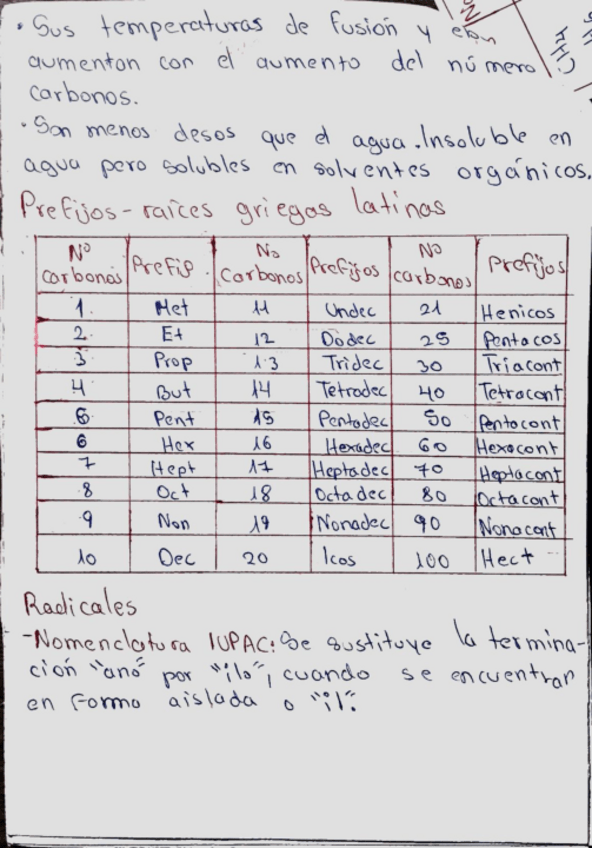 • Sus temperaturas de fusión y ebn
aumentan con el aumento del número
carbonos.
• Son menos desos que el agua. Insoluble en
agua pero solubles en solventes orgánicos.
Prefijos - raíces griegas latinas
Nº carbonos Prefijo Nº Carbonos Prefijos Nº carbonos Prefijos
1 Met 11 Undec 21 Henicos
2 Et 12 Dodec 25 Pentacos
3 Prop 13 Tridec 30 Triacont
4 But 14 Tetradec 40 Tetracont
5 Pent 15 Pentadec 50 Pentacont
6 Hex 16 Hexadec 60 Hexacont
7 Hept 17 Heptadec 70 Heptacont
8 Oct 18 Octadec 80 Octacont
9 Non 19 Nonadec 90 Nonacont
10 Dec 20 Icos 100 Hect
Radicales
- Nomenclatura IUPAC: Se sustituye la termina-
ción "ano" por "ilo", cuando se encuentran
en forma aislada o "il".